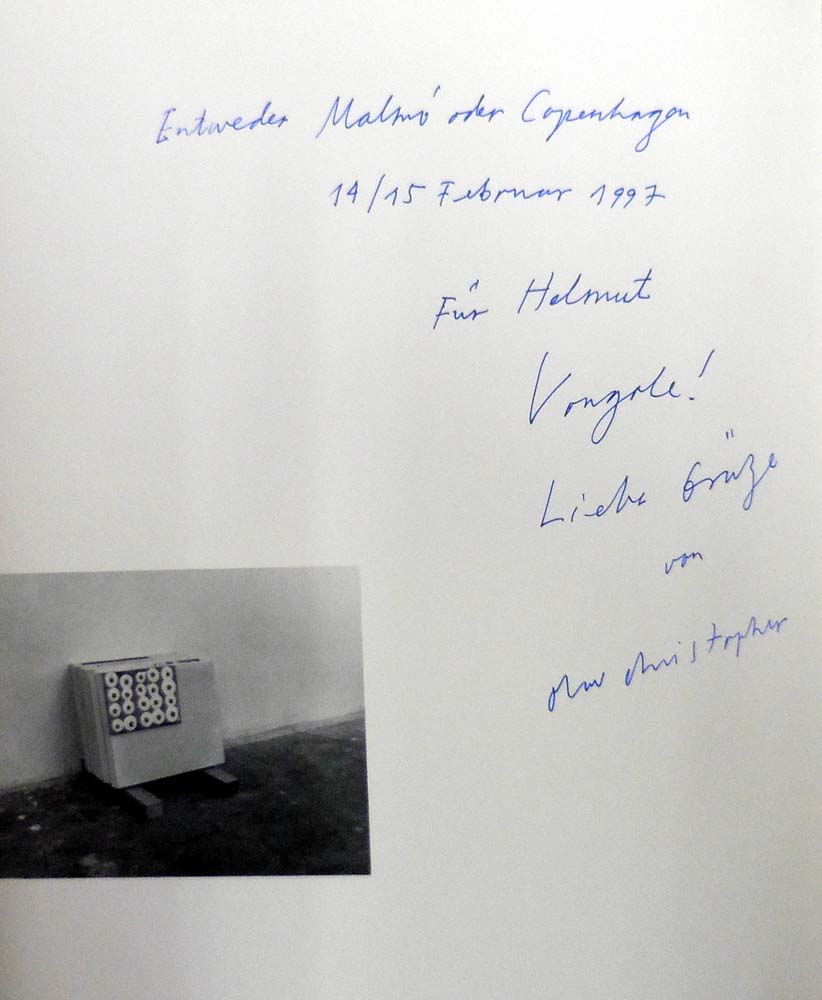 Entweder Malmö oder Copenhagen
14/15 Februar 1997
Für Helmut
Vongole!
Liebe Grüße
von
christopher